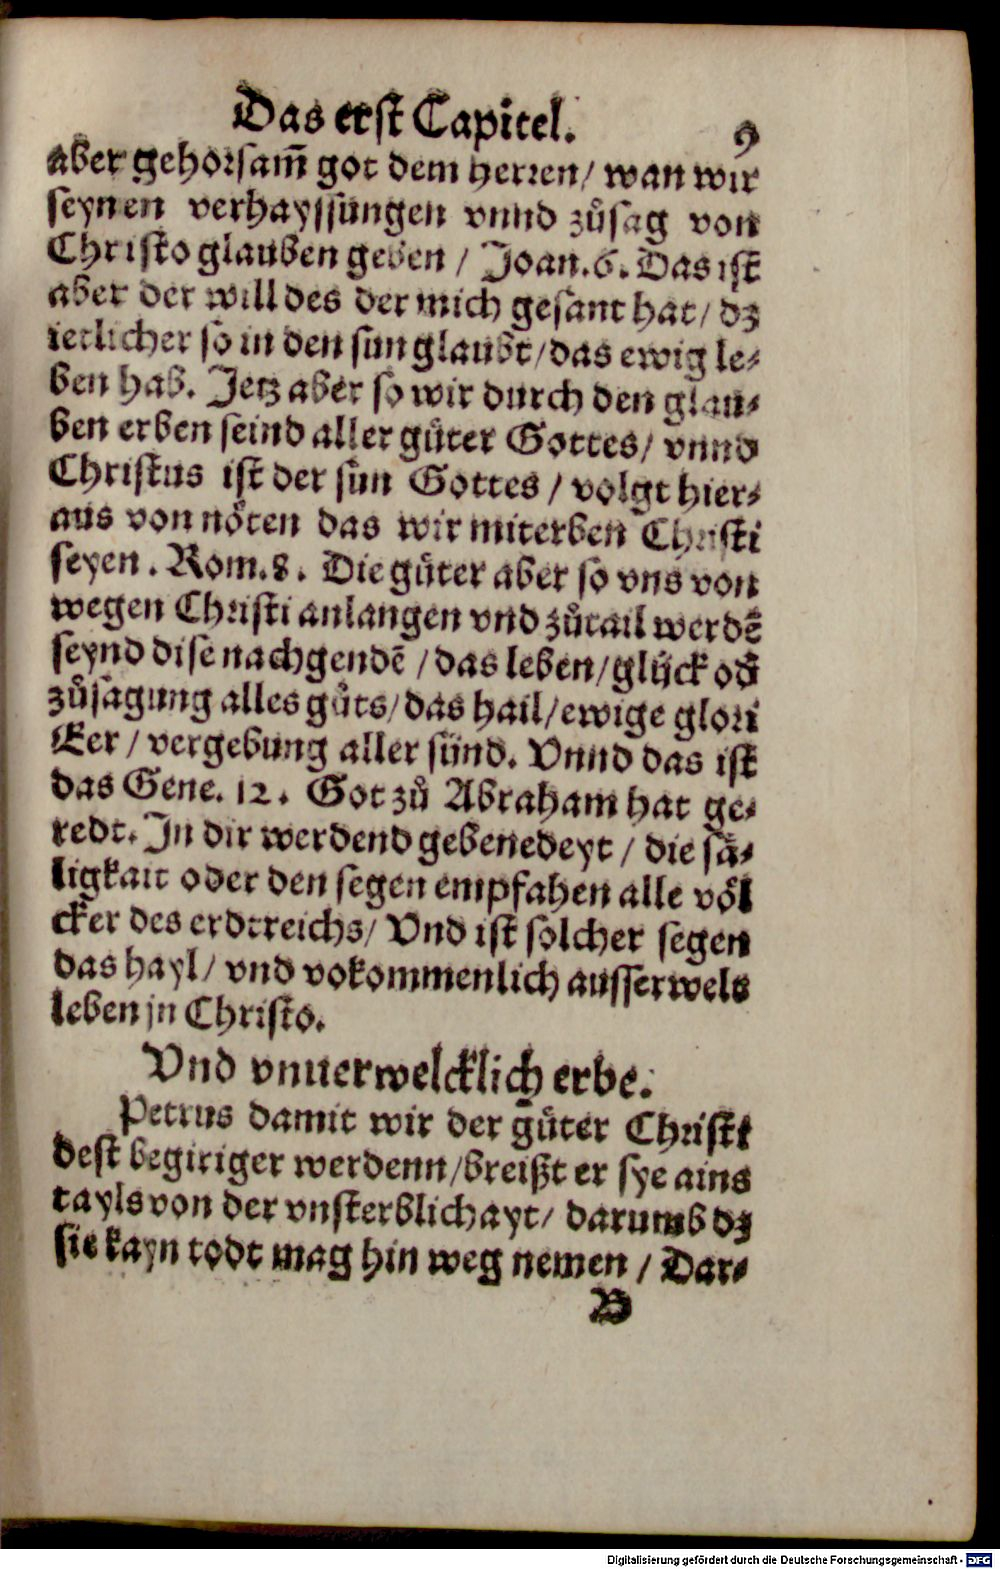 Das erst Capitel. 9
aber gehorsam̃ got dem herren/ wan wir
seynen verhayssungen vnnd zůsag von
Christo glauben geben / Joan.6. Das ist
aber der will des der mich gesant hat/ dz
ietlicher so in den sun glaubt/das ewig le⸗
ben hab. Jetz aber so wir durch den glau⸗
ben erben seind aller gůter Gottes/ vnnd
Christus ist der sun Gottes / volgt hier⸗
aus von nöten das wir miterben Christi
seyen. Rom.8. Die gůter aber so vns von
wegen Christi anlangen vnd zůtail werdẽ
seynd dise nachgendẽ /das leben/glück od̃
zůsagung alles gůts/das hail/ewige glori
Eer / vergebung aller sünd. Vnnd das ist
das Gene. 12. Got zů Abraham hat ge⸗
redt. In dir werdend gebenedeyt / die sä⸗
ligkait oder den segen empfahen alle völ
cker des erdtreichs/ Vnd ist solcher segen
das hayl/ vnd vokommenlich ausserwels
leben jn Christo.
Vnd vnuerwelcklich erbe.
Petrus damit wir der gůter Christi
dest begiriger werdenn/breißt er sye ains
tayls von der vnsterblichayt/ darumb dz
sie kayn todt mag hin weg nemen / Dar⸗
B
Digitalisierung gefördert durch die Deutsche Forschungsgemeinschaft - DFG